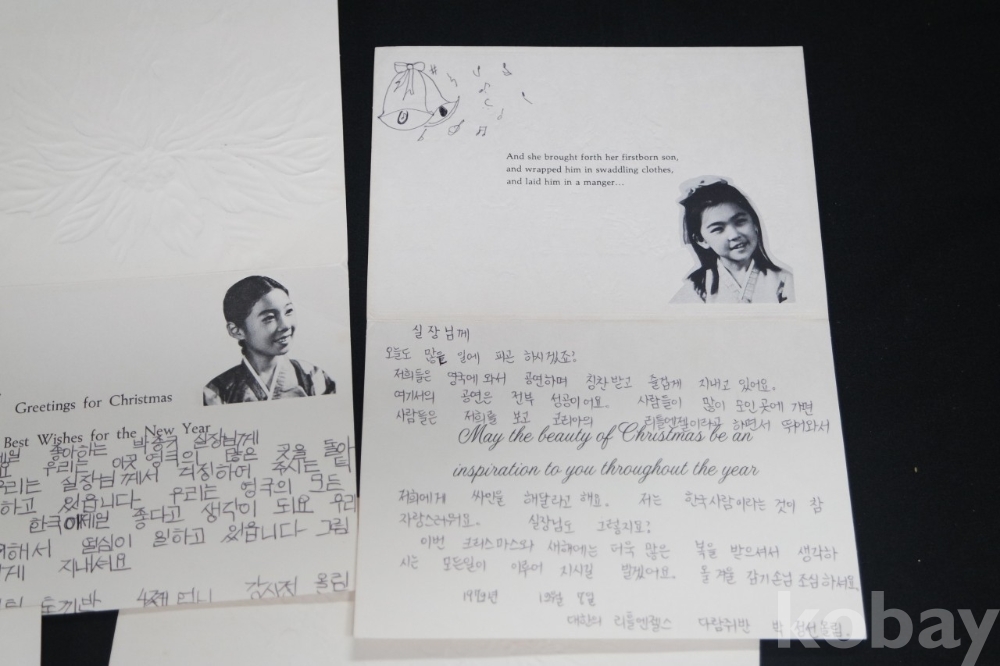 Greetings for Christmas
Best Wishes for the New Year
좋아하는 박종국 실장님께
우리는 이곳 영국의 많은 곳을 돌아
우리는 실장님께서 걱정하여 주시는
하고 있읍니다 우리는 영국의 모든
한국이 제일 좋다고 생각이 되요 우리
위해서 열심이 일하고 있읍니다 그럼
지내셔요
토끼반 언니 올림
And she brought forth her firstborn son,
and wrapped him in swaddling clothes,
and laid him in a manger...
실장님께
오늘도 많은 일에 피곤 하시겠죠?
저희들은 영국에 와서 공연하며 칭찬받고 즐겁게 지내고 있어요.
여기서의 공연은 전부 성공이어요. 사람들이 많이 모인 곳에 가면
사람들은 저희를 보고 코리아의 리틀엔젤이라고 하면서 뛰어와서
May the beauty of Christmas be an
inspiration to you throughout the year
저희에게 싸인을 해달라고 해요. 저는 한국사람이라는 것이 참
자랑스러워요. 실장님도 그렇지요?
이번 크리스마스와 새해에는 더욱 많은 복을 받으셔서 생각하
시는 모든일이 이루어 지시길 빌겠어요. 올 겨울 감기손님 조심하셔요.
12월 8일
대한의 리틀엔젤스 다람쥐반 박 정선 올림.
kobay